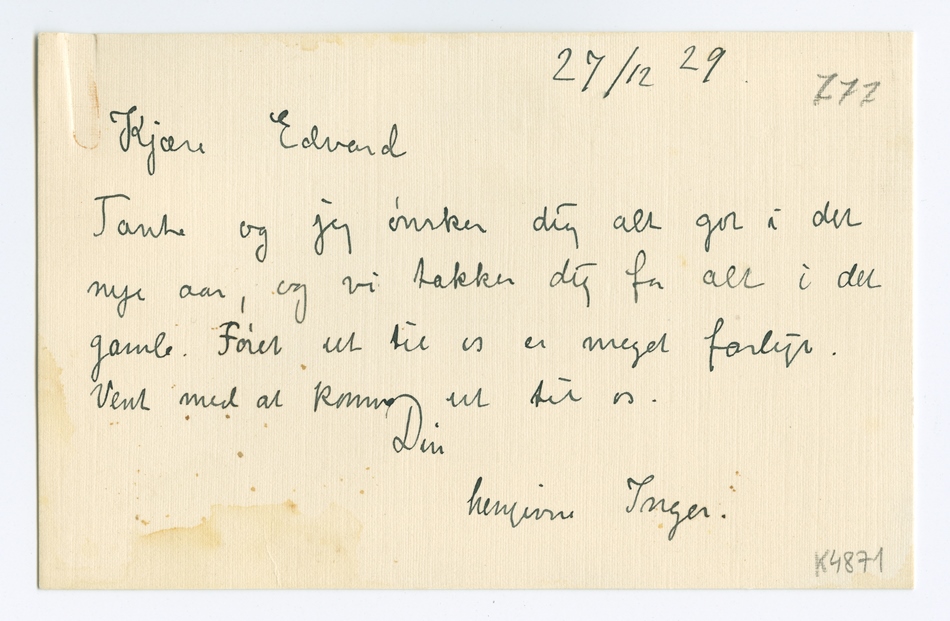 27/12 29.
777
Kjære Edvard
Tante og jeg ønsker dig alt got i det
nye aar, og vi takker dig for alt i det
gamle. Føret ut til os er meget farligt.
Vent med at komme ut til os.
Din
hengivne Inger.
K4871